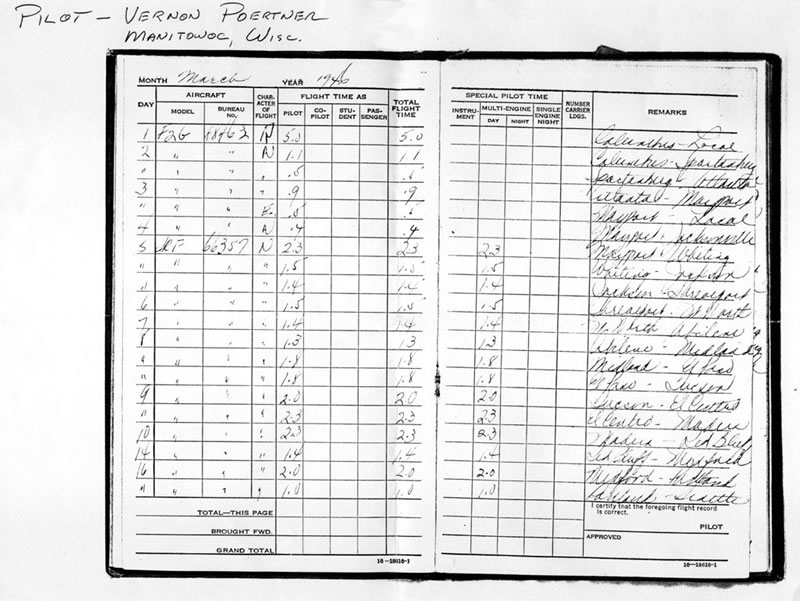 PILOT — VERNON POERTNER
MANITOWOC, WISC.
MONTH March YEAR 1946
DAY AIRCRAFT MODEL BUREAU NO. CHARACTER OF FLIGHT FLIGHT TIME AS PILOT CO-PILOT STUDENT PASSENGER TOTAL FLIGHT TIME SPECIAL PILOT TIME INSTRUMENT MULTI-ENGINE DAY NIGHT SINGLE ENGINE NIGHT NUMBER CARRIER LDGS. REMARKS
1 F2G N 5.0 5.0 Columbus - Local
2 " " N 1.1 1.1 Columbus - Spartanburg
" " " " .5 .5 Spartanburg - Atlanta
3 " " " .9 .9 Atlanta - Mayport
" " " .5 .5 Mayport - Local
4 " " N .4 .4 Mayport - Jacksonville
5 JRF 66357 N 2.3 2.3 2.3 Mayport - Whiting
" " " " 1.5 1.5 1.5 Whiting - Jackson
" " " " 1.4 1.4 1.4 Jackson - Shreveport
6 " " " 1.5 1.5 1.5 Shreveport - Ft Worth
7 " " " 1.4 1.4 1.4 Ft Worth - Abilene
8 " " " 1.3 1.3 1.3 Abilene - Midland
" " " " 1.8 1.8 1.8 Midland - El Paso
" " " " 1.8 1.8 1.8 El Paso - Tucson
9 " " " 2.0 2.0 2.0 Tucson - El Centro
" " " " 2.3 2.3 2.3 El Centro - Madera
10 " " " 2.3 2.3 2.3 Madera - Red Bluff
14 " " " 1.4 1.4 1.4 Red Bluff - Medford
16 " " " 2.0 2.0 2.0 Medford -
" " " " 1.0 1.0 1.0 - Seattle
TOTAL—THIS PAGE
I certify that the foregoing flight record is correct.
BROUGHT FWD. PILOT
GRAND TOTAL APPROVED
16—18616-1 16—18616-1